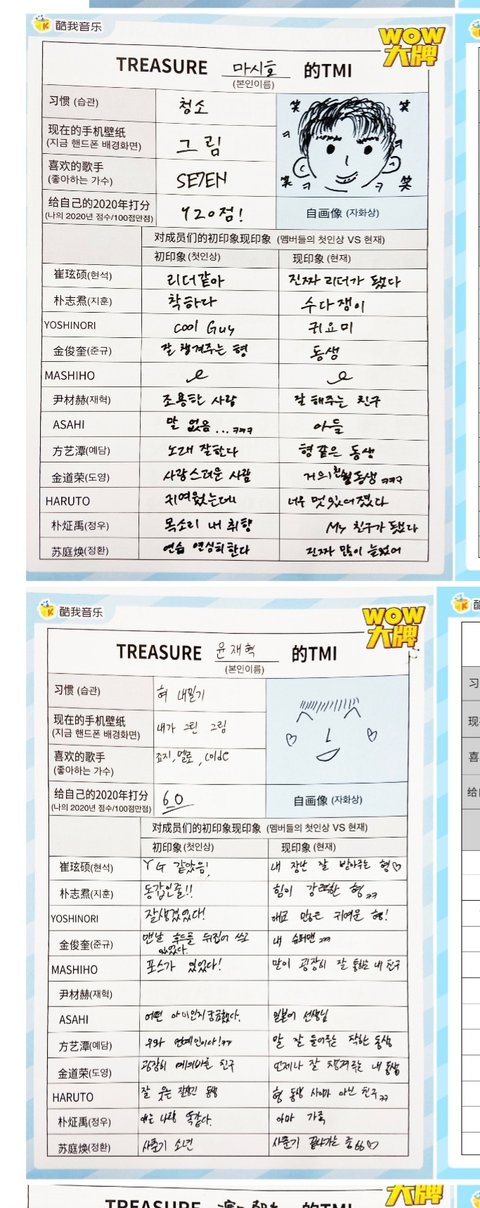 酷我音乐
WOW
大牌
TREASURE 마시호 的TMI
(본인이름)
习惯 (습관)
청소
现在的手机壁纸
(지금 핸드폰 배경화면)
그림
喜欢的歌手
(좋아하는 가수)
SE7EN
给自己的2020年打分
(나의 2020년 점수/100점만점)
420점!
自画像 (자화상)
对成员们的初印象现印象 (멤버들의 첫인상 VS 현재)
初印象(첫인상) 现印象 (현재)
崔玹硕(현석) 리더같아 진짜 리더가 됐다
朴志焄(지훈) 착하다 수다쟁이
YOSHINORI cool Guy 귀요미
金俊奎(준규) 잘 챙겨주는 형 동생
MASHIHO
尹材赫(재혁) 조용한 사람 잘 해주는 친구
ASAHI 말 없음...ㅋㅋㅋ 아들
方艺潭(예담) 노래 잘한다 형 같은 동생
金道荣(도영) 사랑스러운 사람 거의 동생 ㅋㅋㅋ
HARUTO 귀여웠는데 너무 멋있어졌다
朴炡禹(정우) 목소리 내 취향 My 친구가 됐다
苏庭焕(정환) 연습 열심히한다 진짜 많이 늘었어
酷我音乐
WOW
大牌
TREASURE 윤재혁 的TMI
(본인이름)
习惯 (습관)
혀 내밀기
现在的手机壁纸
(지금 핸드폰 배경화면)
내가 그린 그림
喜欢的歌手
(좋아하는 가수)
죠지, 멜로, coldC
给自己的2020年打分
(나의 2020년 점수/100점만점)
60
自画像 (자화상)
对成员们的初印象现印象 (멤버들의 첫인상 VS 현재)
初印象(첫인상) 现印象(현재)
崔玹硕(현석) YG 같았음! 내 장난 잘 받아주는 형♡
朴志焄(지훈) 동갑인줄!! 힘이 강력한 형 ㅋㅋ
YOSHINORI 잘생겼었다! 귀여운 형!
金俊奎(준규) 맨날 후드를 뒤집어 쓰고
있었다. 내 슈퍼맨 ㅋㅋ
MASHIHO 포스가 있었다! 말이 굉장히 잘 통하는 내 친구
尹材赫(재혁)
ASAHI 어떤 아이인지 궁금했다. 일본어 선생님
方艺潭(예담) 우와 연예인이다!ㅋㅋ 말 잘 들어주는 착한 동생
金道荣(도영) 굉장히 예의바른 친구 언제나 잘 챙겨주는 내 동생
HARUTO 잘 웃는 동생 형 동생 사이가 아닌 친구ㅋㅋ
朴炡禹(정우) 나랑 똑같다. 아마 가족
苏庭焕(정환) 사춘기 소년 사춘기 끝나가는 중 ♡
TREASURE 的TMI
大牌